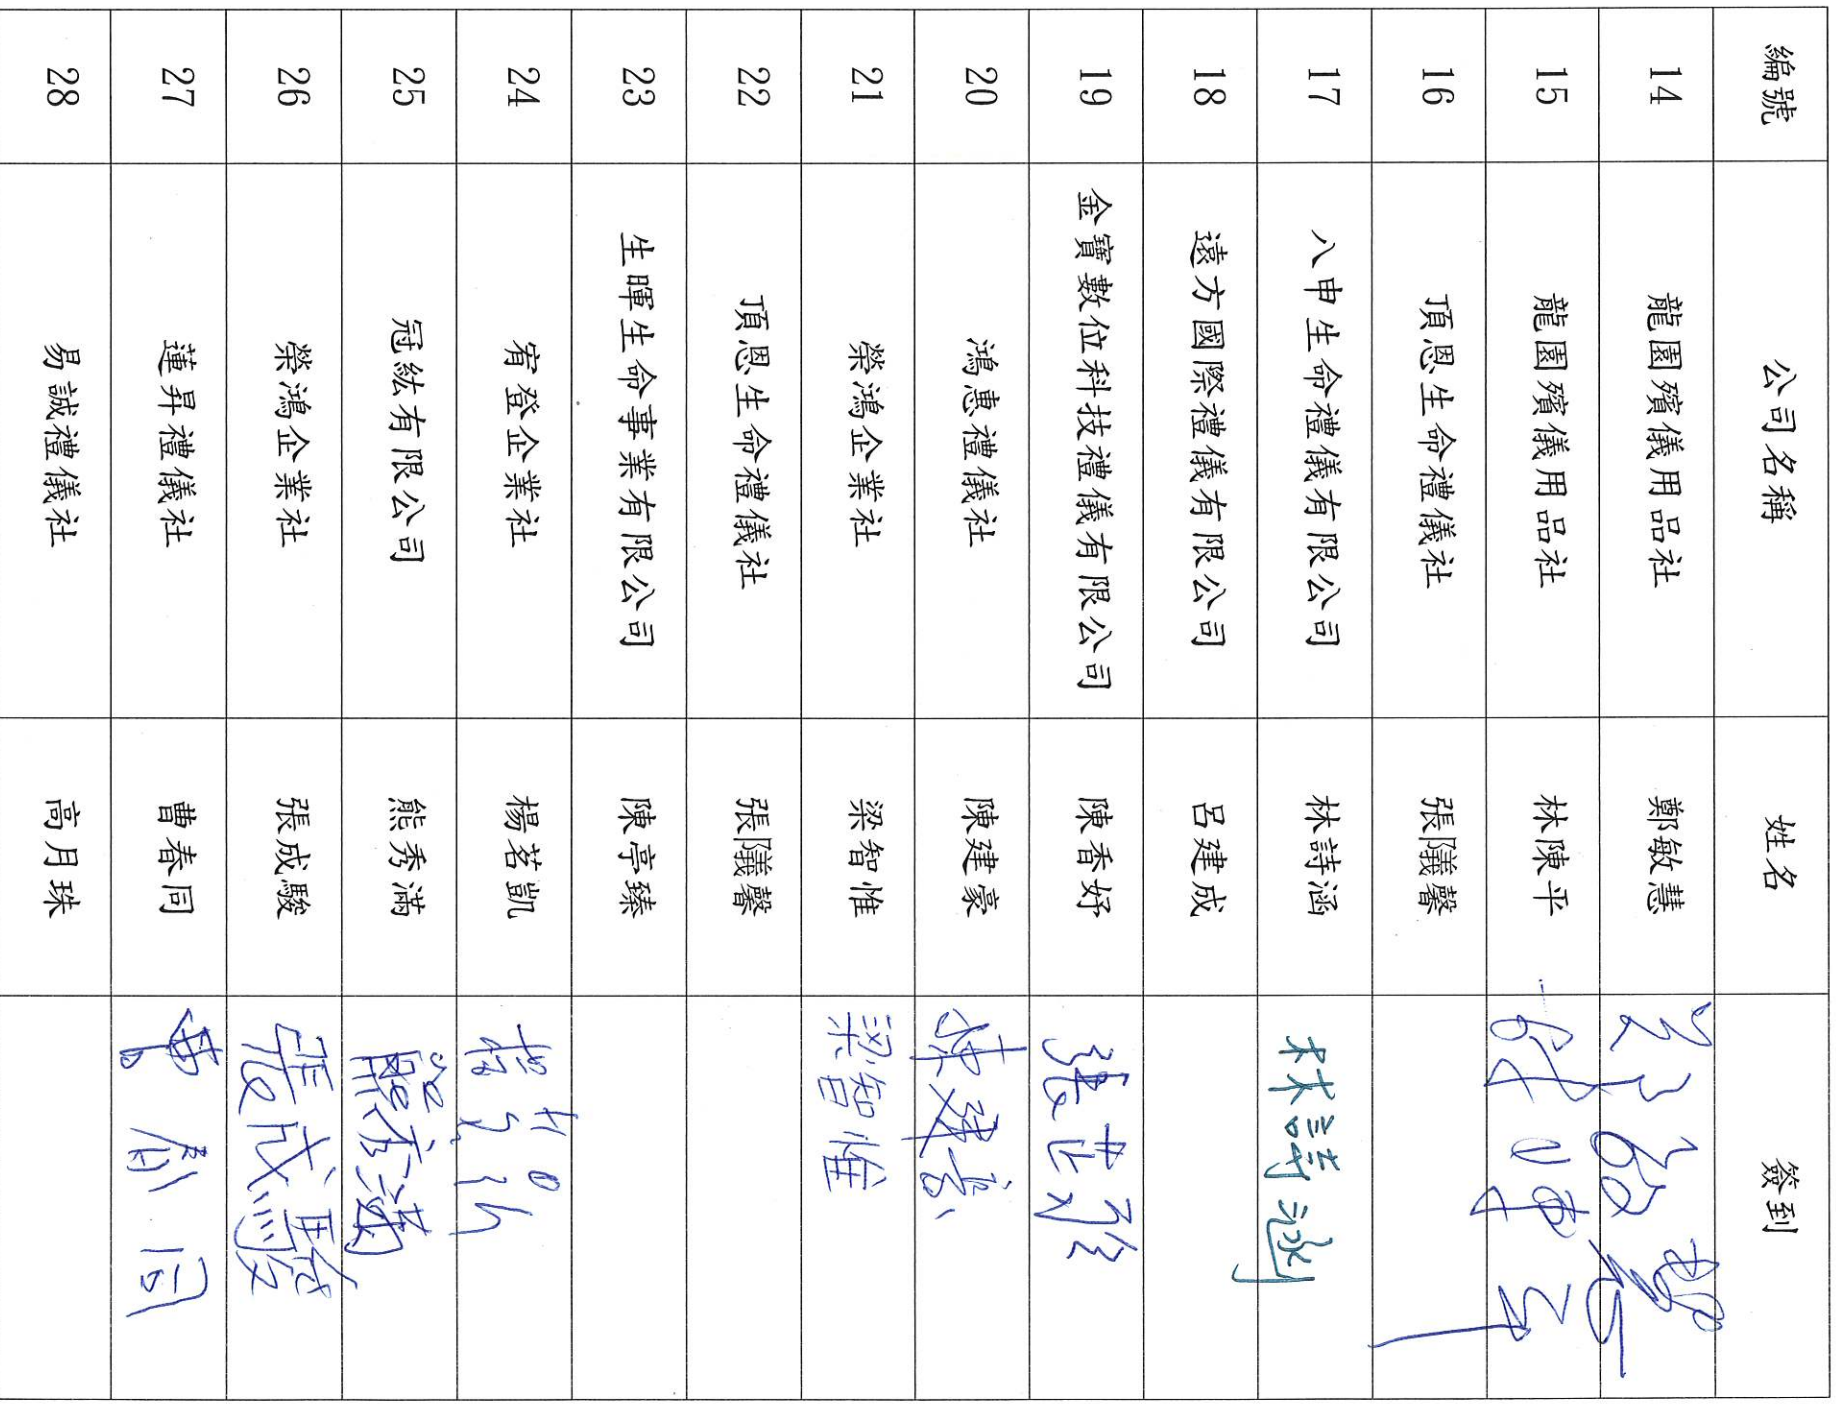 編號 公司名稱 姓名 簽到
14 龍園殯儀用品社 鄭敏慧
15 龍園殯儀用品社 林陳平
16 頂恩生命禮儀社 張隵馨
17 八申生命禮儀有限公司 林詩涵 林詩涵
18 遠方國際禮儀有限公司 呂建成
19 金寶數位科技禮儀有限公司 陳香妤
20 鴻惠禮儀社 陳建豪 陳建豪
21 榮鴻企業社 梁智惟 梁智惟
22 頂恩生命禮儀社 張隵馨
23 生暉生命事業有限公司 陳亭臻
24 宥登企業社 楊茗凱
25 冠紘有限公司 熊秀滿 熊秀滿
26 榮鴻企業社 張成駿 張成駿
27 蓮昇禮儀社 曹春同
28 易誠禮儀社 高月珠